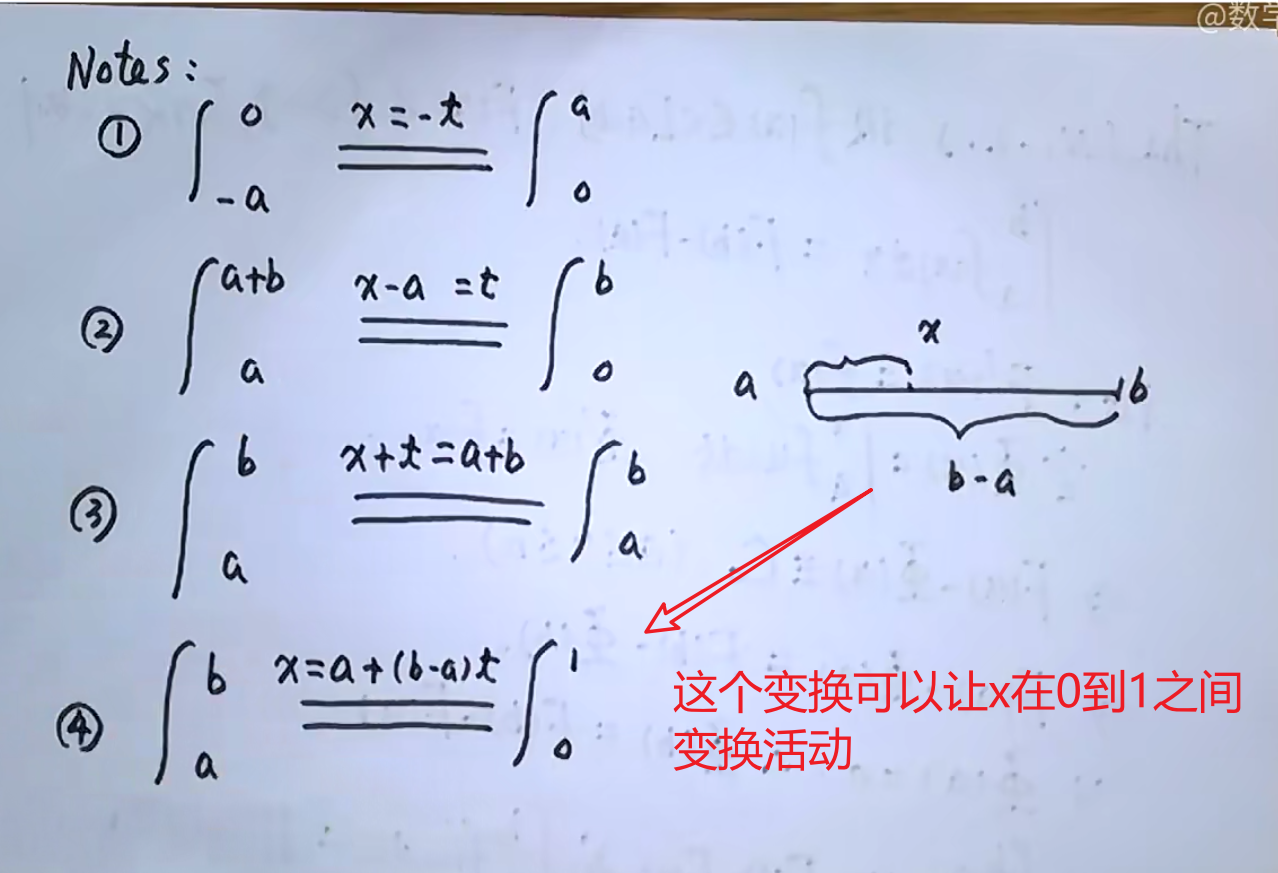 @数学
Notes:
① ∫_{-a}^{0} x=-t ∫_{0}^{a}
② ∫_{a}^{a+b} x-a=t ∫_{0}^{b}
③ ∫_{a}^{b} x+t=a+b ∫_{a}^{b}
④ ∫_{a}^{b} x=a+(b-a)t ∫_{0}^{1}
x
a b
b-a
这个变换可以让x在0到1之间
变换活动